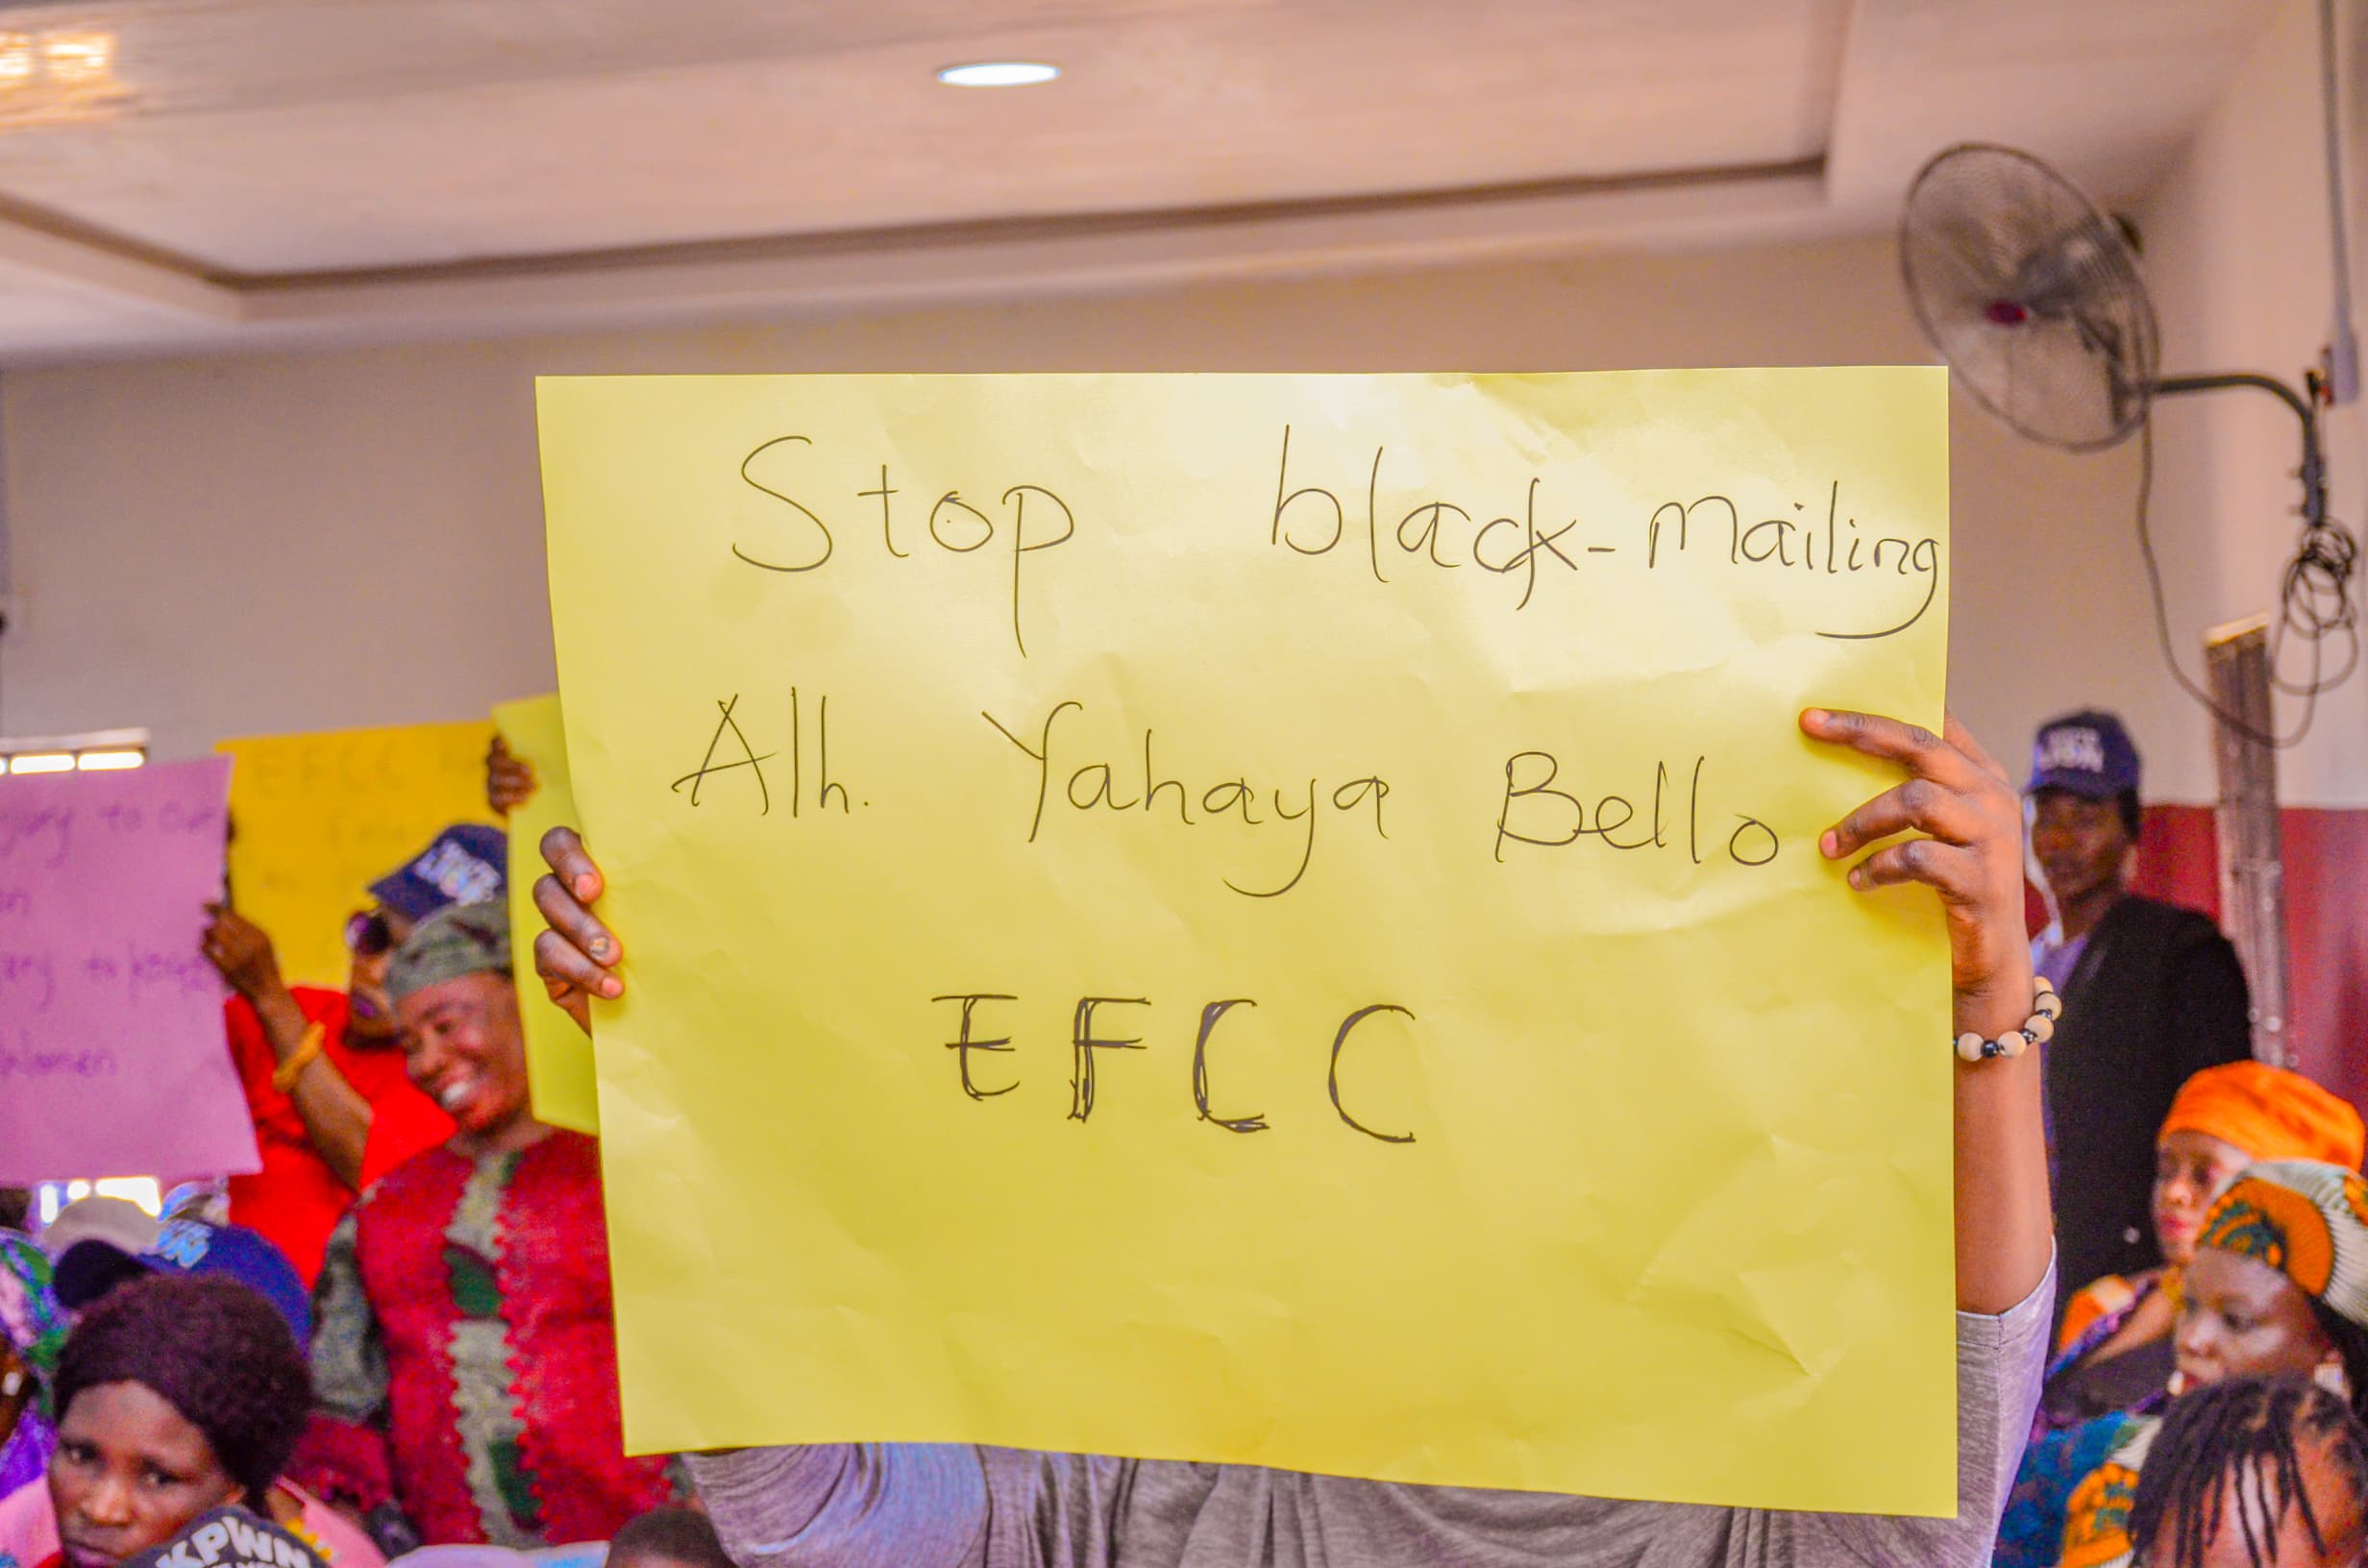 Stop black-mailing
Alh. Yahaya Bello
EFCC
EFCC
to our
to
Women
KPWN